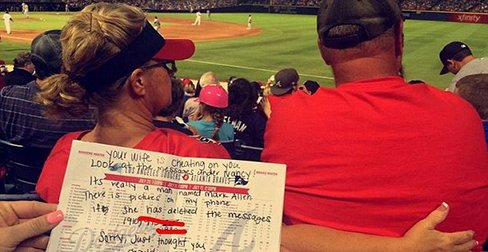 xfinity
Your wife is cheating on you
Look at the messages under Nancy
LOS ANGELES DODGERS at ATLANTA BRAVES
Its really a man named Mark Allen
There is pictures on my phone
if she has deleted the messages
Sorry, Just thought you